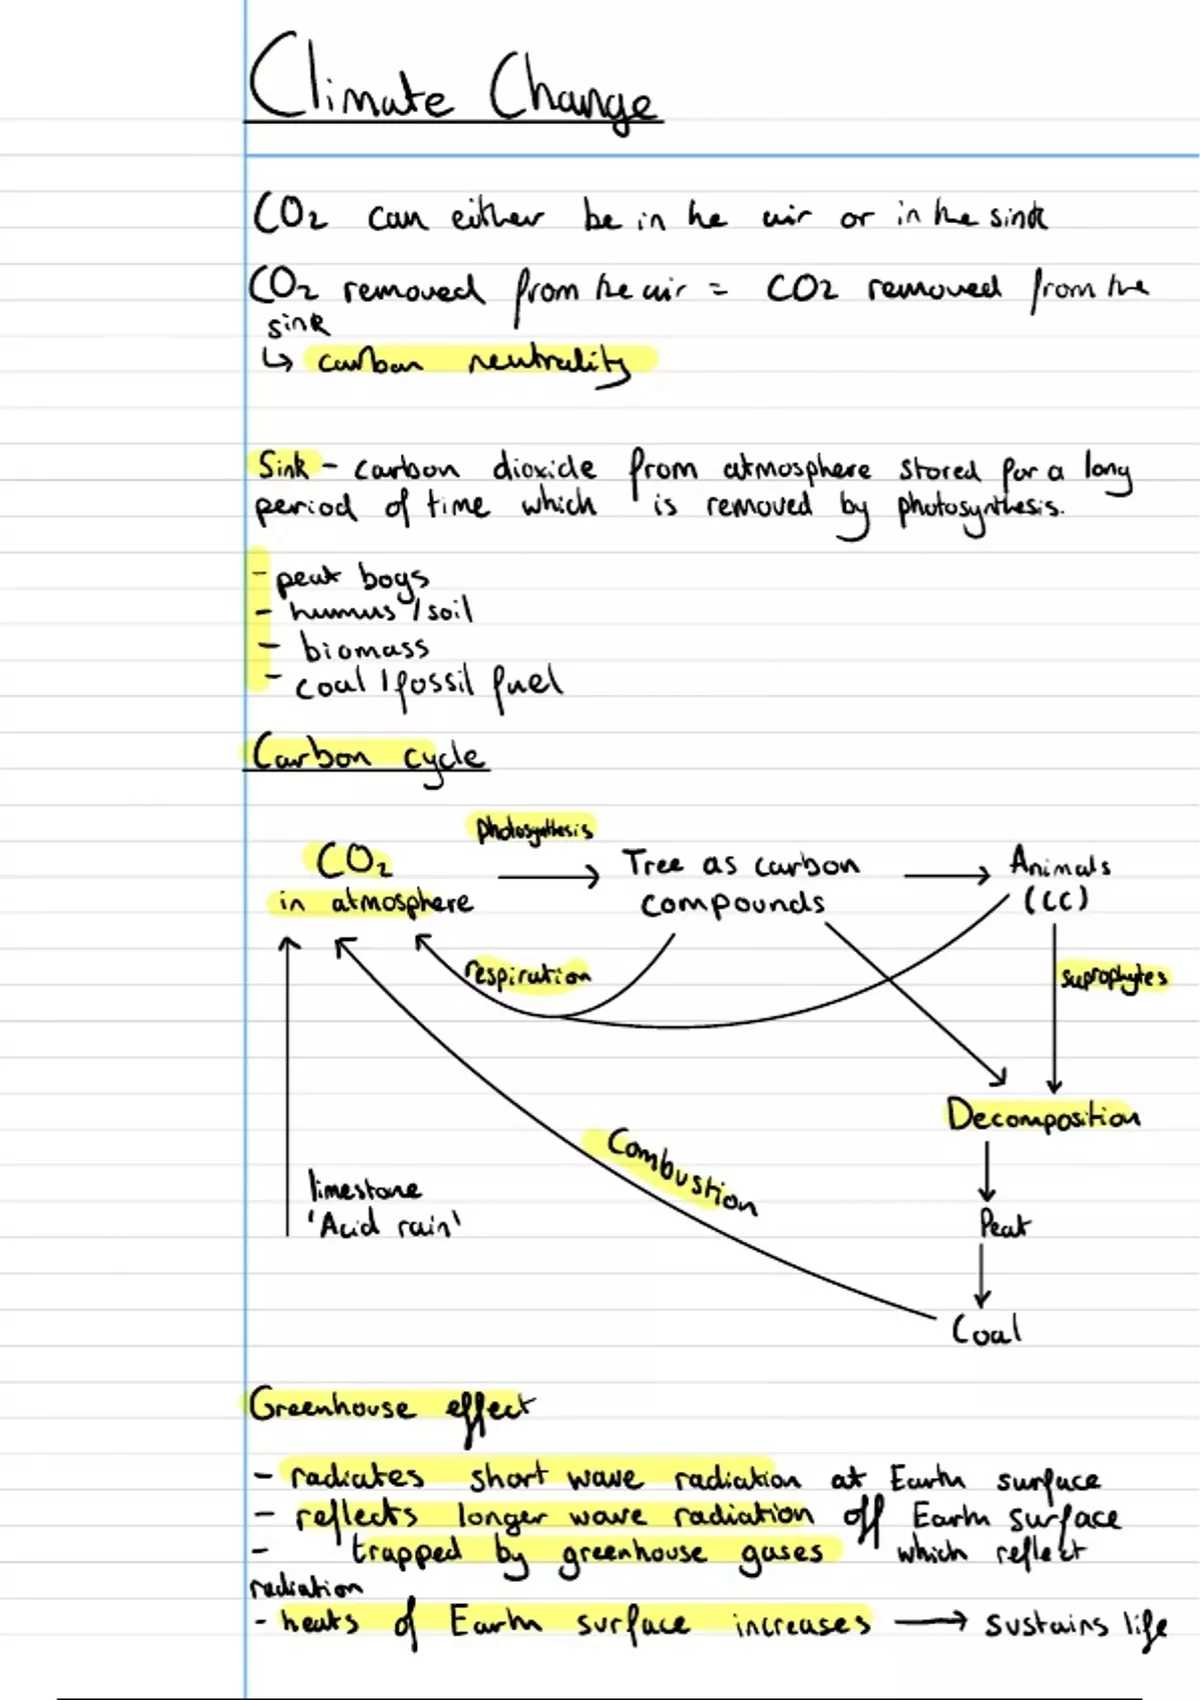 Climate Change
CO2 can either be in the air or in the sink
CO2 removed from the air = CO2 removed from the
sink
↳ carbon neutrality
Sink - carbon dioxide from atmosphere stored for a long
period of time which is removed by photosynthesis.
- peat bogs
- humus / soil
- biomass
- coal / fossil fuel
Carbon cycle
photosynthesis
CO2 → Tree as carbon → Animals
in atmosphere compounds (CC)
respiration saprophytes
Decomposition
Combustion
limestone
'Acid rain' Peat
Coal
Greenhouse effect
- radiates short wave radiation at Earth surface
- reflects longer wave radiation off Earth surface
- trapped by greenhouse gases which reflect
radiation
- heats of Earth surface increases → sustains life